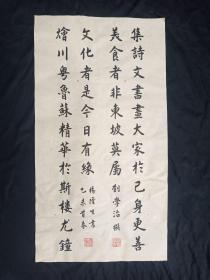 集詩文書畫大家於己身更善
美食者非東坡莫屬 劉學治 撰
文化者是今日有緣 楊隆生書 乙未首春
燴川粵魯蘇精華於斯樓尤鐘